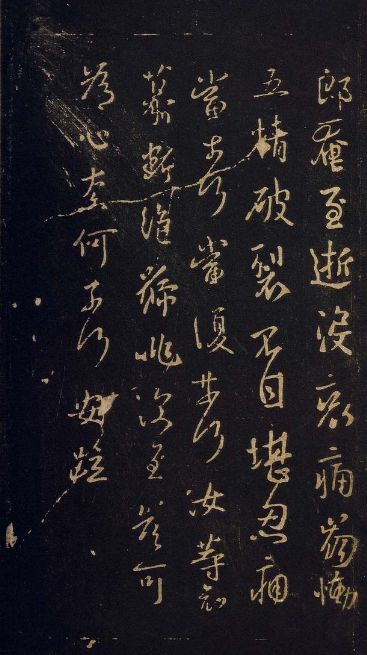 郎奄至逝沒哀痛崩慟
五情破裂不自堪忍痛
當奈何當復奈何汝等哀
慕斷絕號咷深至豈可
為心奈何奈何安疏